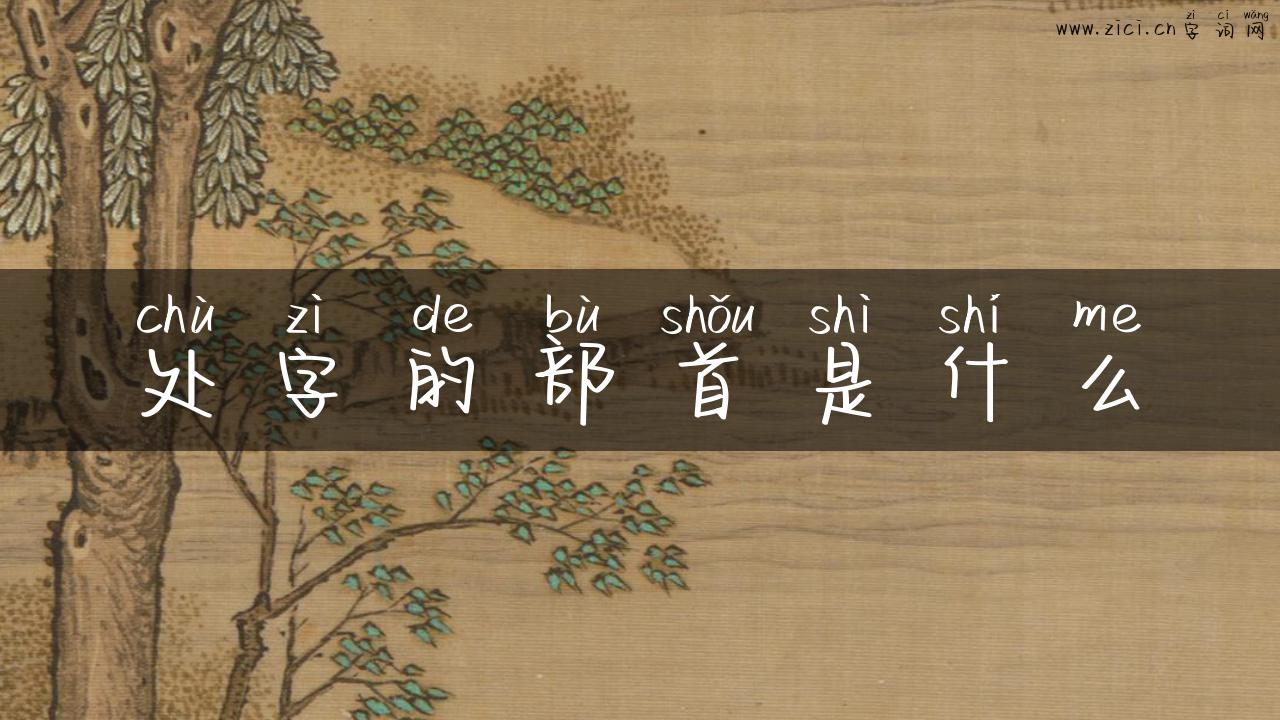 zì cí wǎng
www.zici.cn 字词网
chù zì de bù shǒu shì shí me
处字的部首是什么